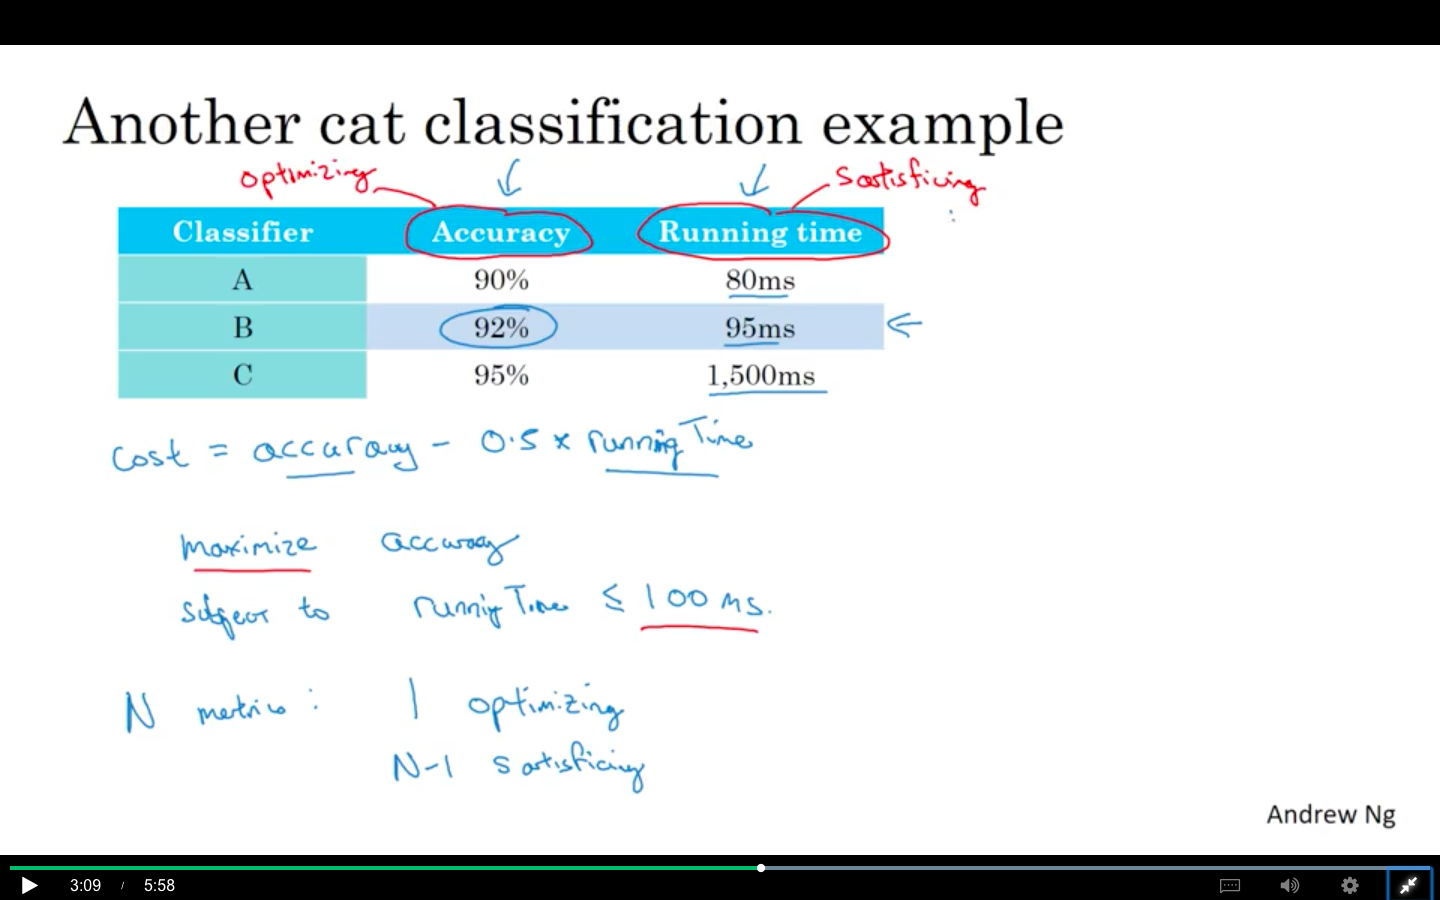 Another cat classification example
optimizing
satisficing
Classifier Accuracy Running time
A 90% 80ms
B 92% 95ms
C 95% 1,500ms
cost = accuracy - 0.5 x runningTime
maximize accuracy
subject to runningTime ≤ 100 ms.
N metrics: 1 optimizing
N-1 satisficing
Andrew Ng
3:09 / 5:58